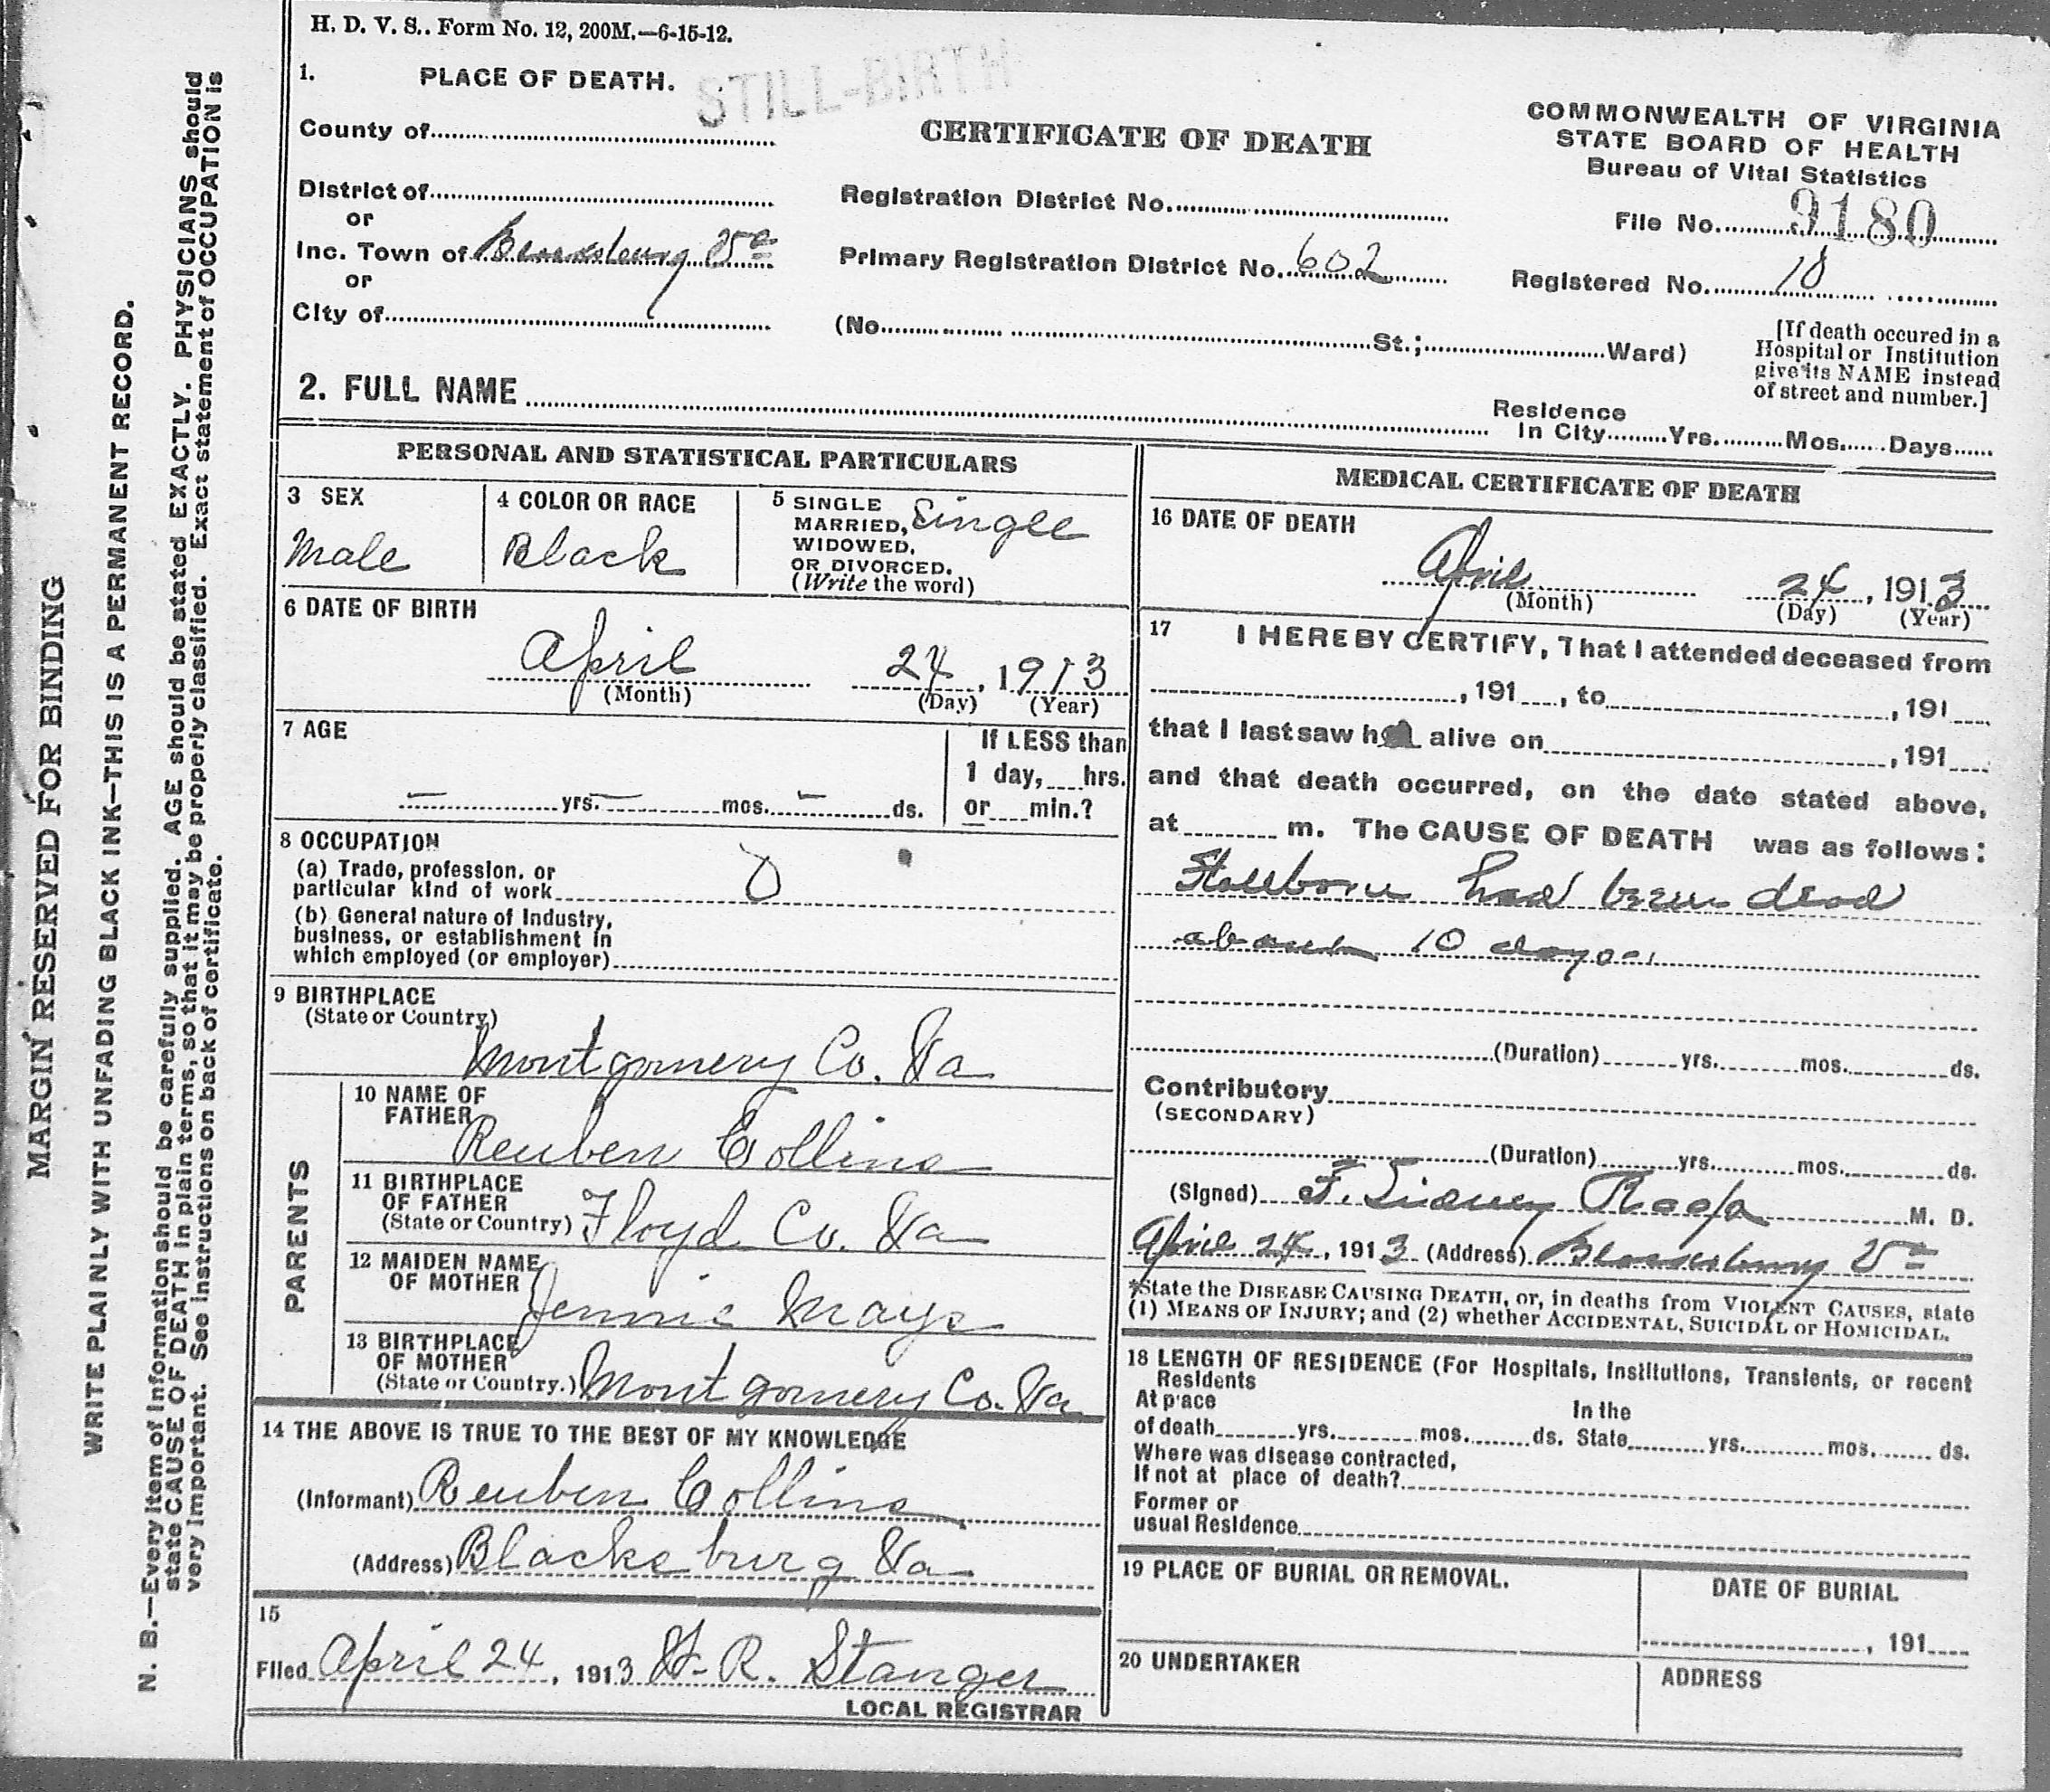 H. D. V. S.. Form No. 12, 200M.—6-15-12.
STILL-BIRTH
1. PLACE OF DEATH.
County of
District of
or
Inc. Town of Blacksburg Va
or
City of
CERTIFICATE OF DEATH
Registration District No.
Primary Registration District No. 602
(No. St.; Ward)
COMMONWEALTH OF VIRGINIA
STATE BOARD OF HEALTH
Bureau of Vital Statistics
File No. 9180
Registered No. 18
[If death occured in a
Hospital or Institution
give its NAME instead
of street and number.]
2. FULL NAME
Residence
In City Yrs. Mos. Days
PERSONAL AND STATISTICAL PARTICULARS
3 SEX
Male
4 COLOR OR RACE
Black
5 SINGLE
MARRIED,
WIDOWED,
OR DIVORCED.
(Write the word)
Single
6 DATE OF BIRTH
April 24, 1913
(Month) (Day) (Year)
7 AGE
— yrs. — mos. — ds.
If LESS than
1 day, hrs.
or min.?
8 OCCUPATION
(a) Trade, profession, or
particular kind of work 0
(b) General nature of Industry,
business, or establishment in
which employed (or employer)
9 BIRTHPLACE
(State or Country)
Montgomery Co. Va
PARENTS
10 NAME OF
FATHER
Reuben Collins
11 BIRTHPLACE
OF FATHER
(State or Country) Floyd Co. Va
12 MAIDEN NAME
OF MOTHER
Jennie Mays
13 BIRTHPLACE
OF MOTHER
(State or Country.) Montgomery Co. Va
14 THE ABOVE IS TRUE TO THE BEST OF MY KNOWLEDGE
(Informant) Reuben Collins
(Address) Blacksburg Va
15
Filed April 24, 1913 R. Stanger
LOCAL REGISTRAR
MEDICAL CERTIFICATE OF DEATH
16 DATE OF DEATH
April 24, 1913
(Month) (Day) (Year)
17 I HEREBY CERTIFY, That I attended deceased from
, 191 , to , 191
that I last saw h alive on , 191
and that death occurred, on the date stated above,
at m. The CAUSE OF DEATH was as follows:
Stillborn had been dead
about 10 days.
(Duration) yrs. mos. ds.
Contributory
(SECONDARY)
(Duration) yrs. mos. ds.
(Signed) F. Sidney Roop M. D.
April 24, 1913 (Address) Blacksburg Va
*State the DISEASE CAUSING DEATH, or, in deaths from VIOLENT CAUSES, state
(1) MEANS OF INJURY; and (2) whether ACCIDENTAL, SUICIDAL or HOMICIDAL.
18 LENGTH OF RESIDENCE (For Hospitals, Institutions, Transients, or recent
Residents
At p'ace In the
of death yrs. mos. ds. State yrs. mos. ds.
Where was disease contracted,
If not at place of death?
Former or
usual Residence
19 PLACE OF BURIAL OR REMOVAL.
DATE OF BURIAL
, 191
20 UNDERTAKER
ADDRESS
MARGIN RESERVED FOR BINDING
WRITE PLAINLY WITH UNFADING BLACK INK—THIS IS A PERMANENT RECORD.
N. B.—Every item of information should be carefully supplied. AGE should be stated EXACTLY. PHYSICIANS should
state CAUSE OF DEATH in plain terms, so that it may be properly classified. Exact statement of OCCUPATION is
very important. See instructions on back of certificate.